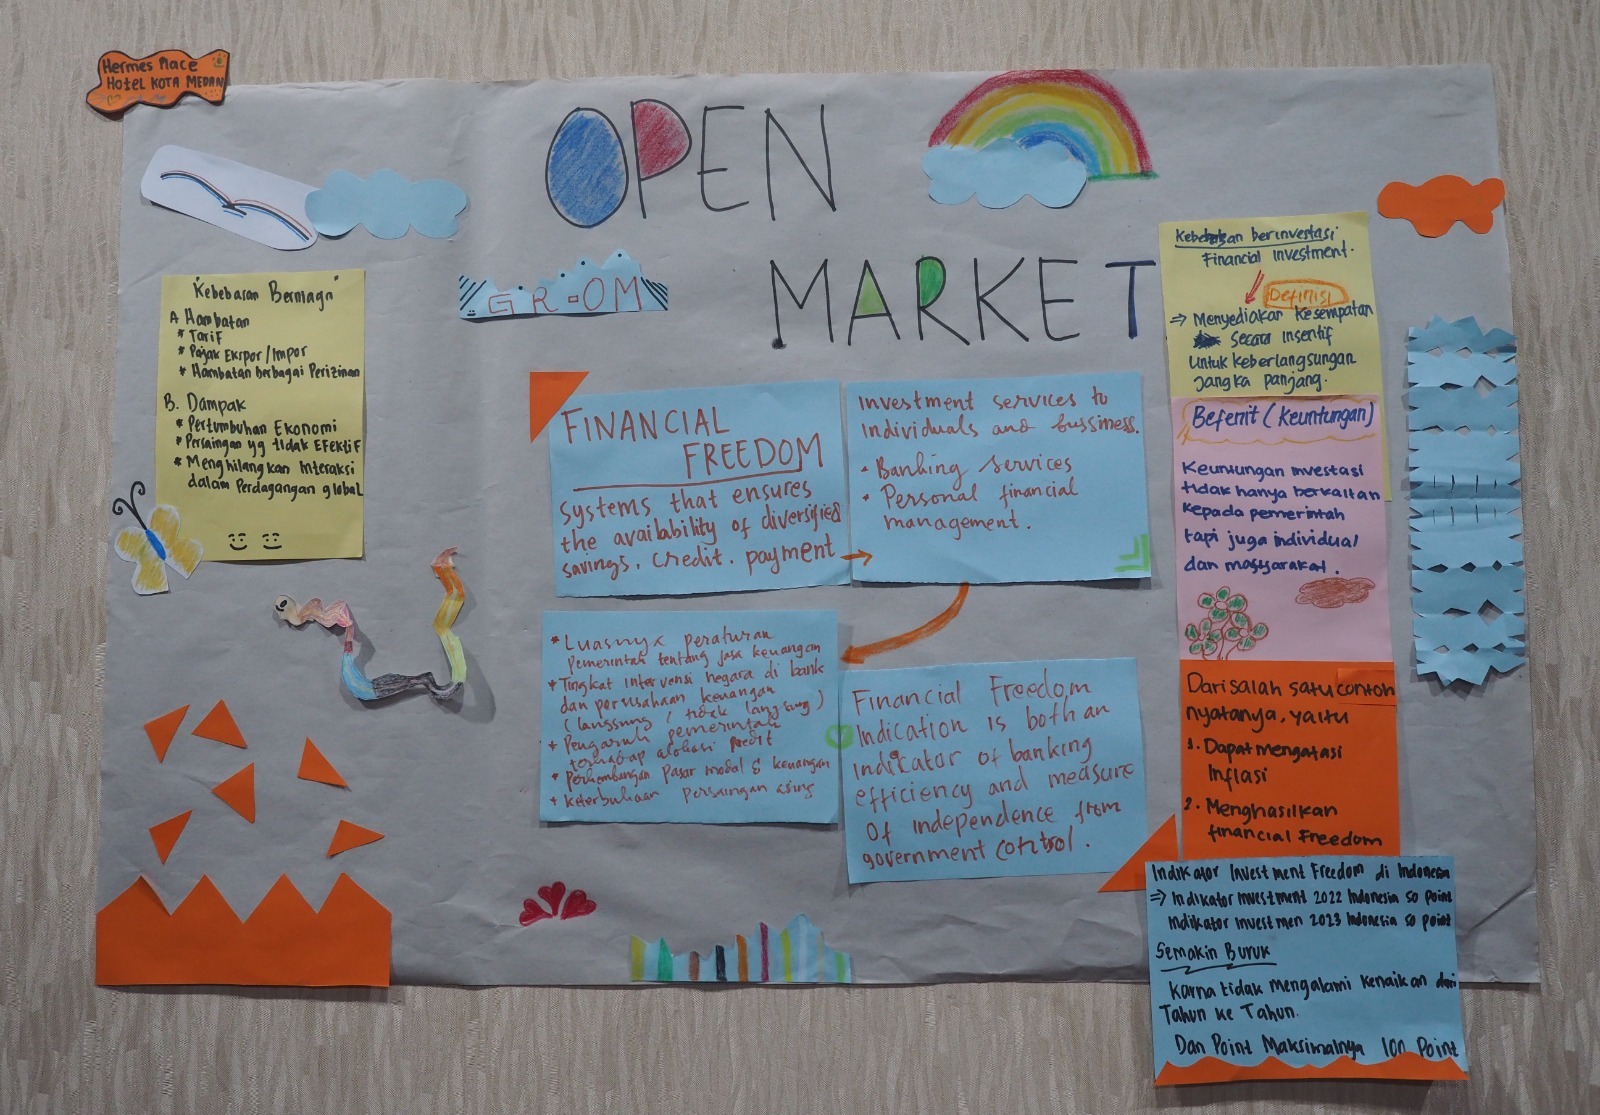 Hermes Place
Hotel KOTA MEDAN
OPEN
MARKET
"Kebebasan Berniaga"
A Hambatan
* Tarif
* Pajak Ekspor/Impor
* Hambatan Berbagai Perizinan
B. Dampak
* Pertumbuhan Ekonomi
* Persaingan yg tidak Efektif
* Menghilangkan Interaksi
dalam Perdagangan global
FINANCIAL
FREEDOM
Systems that ensures
the availability of diversified
savings, credit, payment →
Investment services to
Individuals and bussiness.
• Banking services
• Personal financial
management.
* Luasnya peraturan
pemerintah tentang jasa keuangan
* Tingkat intervensi negara di bank
dan perusahaan keuangan
(langsung / tidak langsung)
* Pengaruh pemerintah
terhadap alokasi kredit
* Perkembangan Pasar modal & keuangan
* Keterbukaan persaingan asing
Financial Freedom
Indication is both an
indicator of banking
efficiency and measure
of independence from
government control.
Kebebasan berinvestasi
Financial investment.
Definisi
⇒ Menyediakan Kesempatan
Secara insentif
untuk keberlangsungan
jangka panjang.
Befenit (Keuntungan)
Keuntungan investasi
tidak hanya berkaitan
kepada pemerintah
tapi juga individual
dan masyarakat.
Dari salah satu contoh
nyatanya, yaitu
1. Dapat mengatasi
inflasi
2. Menghasilkan
financial Freedom
Indikator Investment Freedom di Indonesia
⇒ Indikator Investment 2022 Indonesia 50 point
Indikator Investmen 2023 Indonesia 50 point
Semakin Buruk
Karna tidak mengalami kenaikan dari
Tahun ke Tahun.
Dan Point Maksimalnya 100 Point